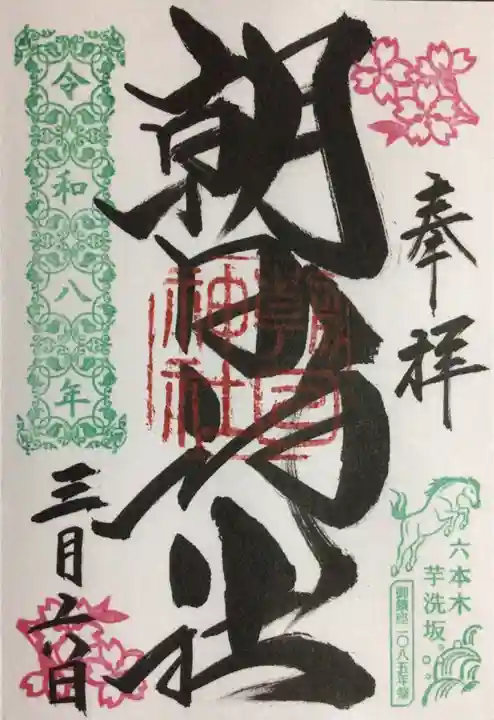 奉拝
六本木
芋洗坂
御鎮座一〇八五年祭
朝日神社
朝日
神社
令和八年
三月六日